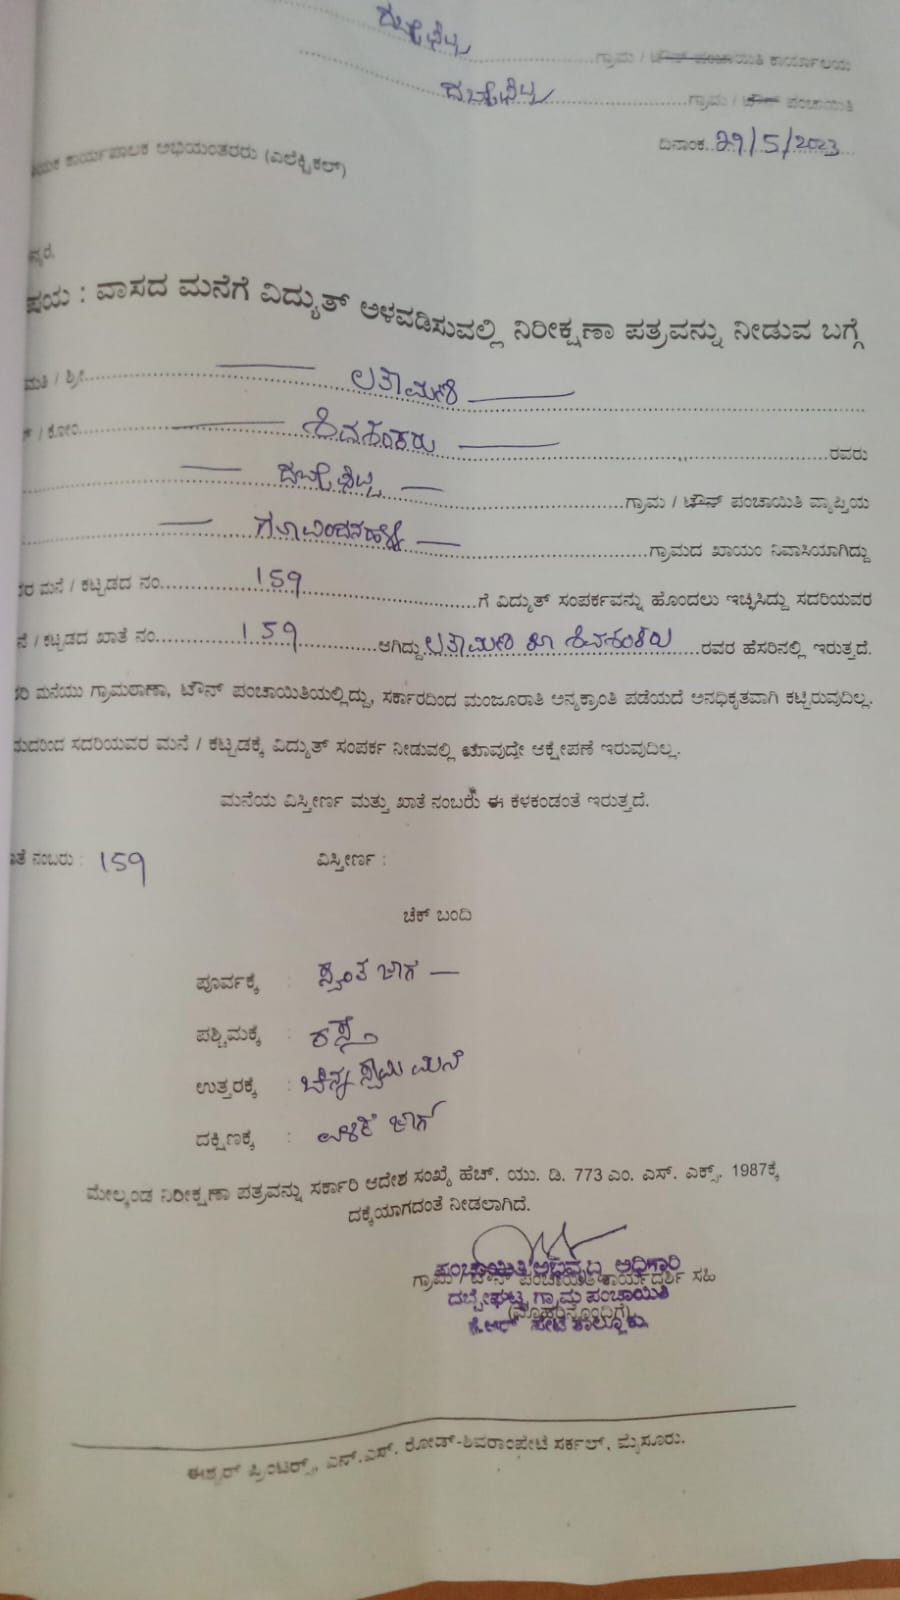 ದಬ್ಬೇಘಟ್ಟ ಗ್ರಾಮ / ಟೌನ್ ಪಂಚಾಯಿತಿ ಕಾರ್ಯಾಲಯ
ದಬ್ಬೇಘಟ್ಟ ಗ್ರಾಮ / ಟೌನ್ ಪಂಚಾಯಿತಿ
ದಿನಾಂಕ..29/5/2023
ಕಾರ್ಯಪಾಲಕ ಅಭಿಯಂತರರು (ಎಲೆಕ್ಟ್ರಿಕಲ್)
: ವಾಸದ ಮನೆಗೆ ವಿದ್ಯುತ್ ಅಳವಡಿಸುವಲ್ಲಿ ನಿರೀಕ್ಷಣಾ ಪತ್ರವನ್ನು ನೀಡುವ ಬಗ್ಗೆ
ಮತಿ / ಶ್ರೀ ಲತಾಮಣಿ
/ ಕೋಂ ಶಿವಶಂಕರು ರವರು
ದಬ್ಬೇಘಟ್ಟ ಗ್ರಾಮ / ಟೌನ್ ಪಂಚಾಯಿತಿ ವ್ಯಾಪ್ತಿಯ
ಗೋವಿಂದನಹಳ್ಳಿ ಗ್ರಾಮದ ಖಾಯಂ ನಿವಾಸಿಯಾಗಿದ್ದು
ಮನೆ / ಕಟ್ಟಡದ ನಂ. 159 ಗೆ ವಿದ್ಯುತ್ ಸಂಪರ್ಕವನ್ನು ಹೊಂದಲು ಇಚ್ಛಿಸಿದ್ದು ಸದರಿಯವರ
/ ಕಟ್ಟಡದ ಖಾತೆ ನಂ. 159 ಆಗಿದ್ದು ಲತಾಮಣಿ ಕೋ ಶಿವಶಂಕರು ರವರ ಹೆಸರಿನಲ್ಲಿ ಇರುತ್ತದೆ.
ಮನೆಯು ಗ್ರಾಮಠಾಣಾ, ಟೌನ್ ಪಂಚಾಯಿತಿಯಲ್ಲಿದ್ದು, ಸರ್ಕಾರದಿಂದ ಮಂಜೂರಾತಿ ಅನ್ಯಕ್ರಾಂತಿ ಪಡೆಯದೆ ಅನಧಿಕೃತವಾಗಿ ಕಟ್ಟಿರುವುದಿಲ್ಲ.
ಸದರಿಯವರ ಮನೆ / ಕಟ್ಟಡಕ್ಕೆ ವಿದ್ಯುತ್ ಸಂಪರ್ಕ ನೀಡುವಲ್ಲಿ ಯಾವುದೇ ಆಕ್ಷೇಪಣೆ ಇರುವುದಿಲ್ಲ.
ಮನೆಯ ವಿಸ್ತೀರ್ಣ ಮತ್ತು ಖಾತೆ ನಂಬರು ಈ ಕೆಳಕಂಡಂತೆ ಇರುತ್ತದೆ.
ನಂಬರು : 159 ವಿಸ್ತೀರ್ಣ :
ಚೆಕ್ ಬಂದಿ
ಪೂರ್ವಕ್ಕೆ : ಸ್ವಂತ ಜಾಗ
ಪಶ್ಚಿಮಕ್ಕೆ : ರಸ್ತೆ
ಉತ್ತರಕ್ಕೆ : ಚೆನ್ನಸ್ವಾಮಿ ಮನೆ
ದಕ್ಷಿಣಕ್ಕೆ : ಜಾಗ
ಮೇಲ್ಕಂಡ ನಿರೀಕ್ಷಣಾ ಪತ್ರವನ್ನು ಸರ್ಕಾರಿ ಆದೇಶ ಸಂಖ್ಯೆ ಹೆಚ್. ಯು. ಡಿ. 773 ಎಂ. ಎಸ್. ಎಕ್ಸ್. 1987ಕ್ಕೆ
ದಕ್ಕೆಯಾಗದಂತೆ ನೀಡಲಾಗಿದೆ.
ಪಂಚಾಯಿತಿ ಅಭಿವೃದ್ಧಿ ಅಧಿಕಾರಿ
ಗ್ರಾಮ / ಟೌನ್ ಪಂಚಾಯಿತಿ ಕಾರ್ಯದರ್ಶಿ ಸಹಿ
ದಬ್ಬೇಘಟ್ಟ ಗ್ರಾಮ ಪಂಚಾಯಿತಿ
(ಮೊಹರಿನೊಂದಿಗೆ)
ಕೆ.ಆರ್ ಪೇಟೆ ತಾಲ್ಲೂಕು.
ಈಶ್ವರ್ ಪ್ರಿಂಟರ್ಸ್, ಎನ್.ಎಸ್. ರೋಡ್-ಶಿವರಾಂಪೇಟೆ ಸರ್ಕಲ್, ಮೈಸೂರು.